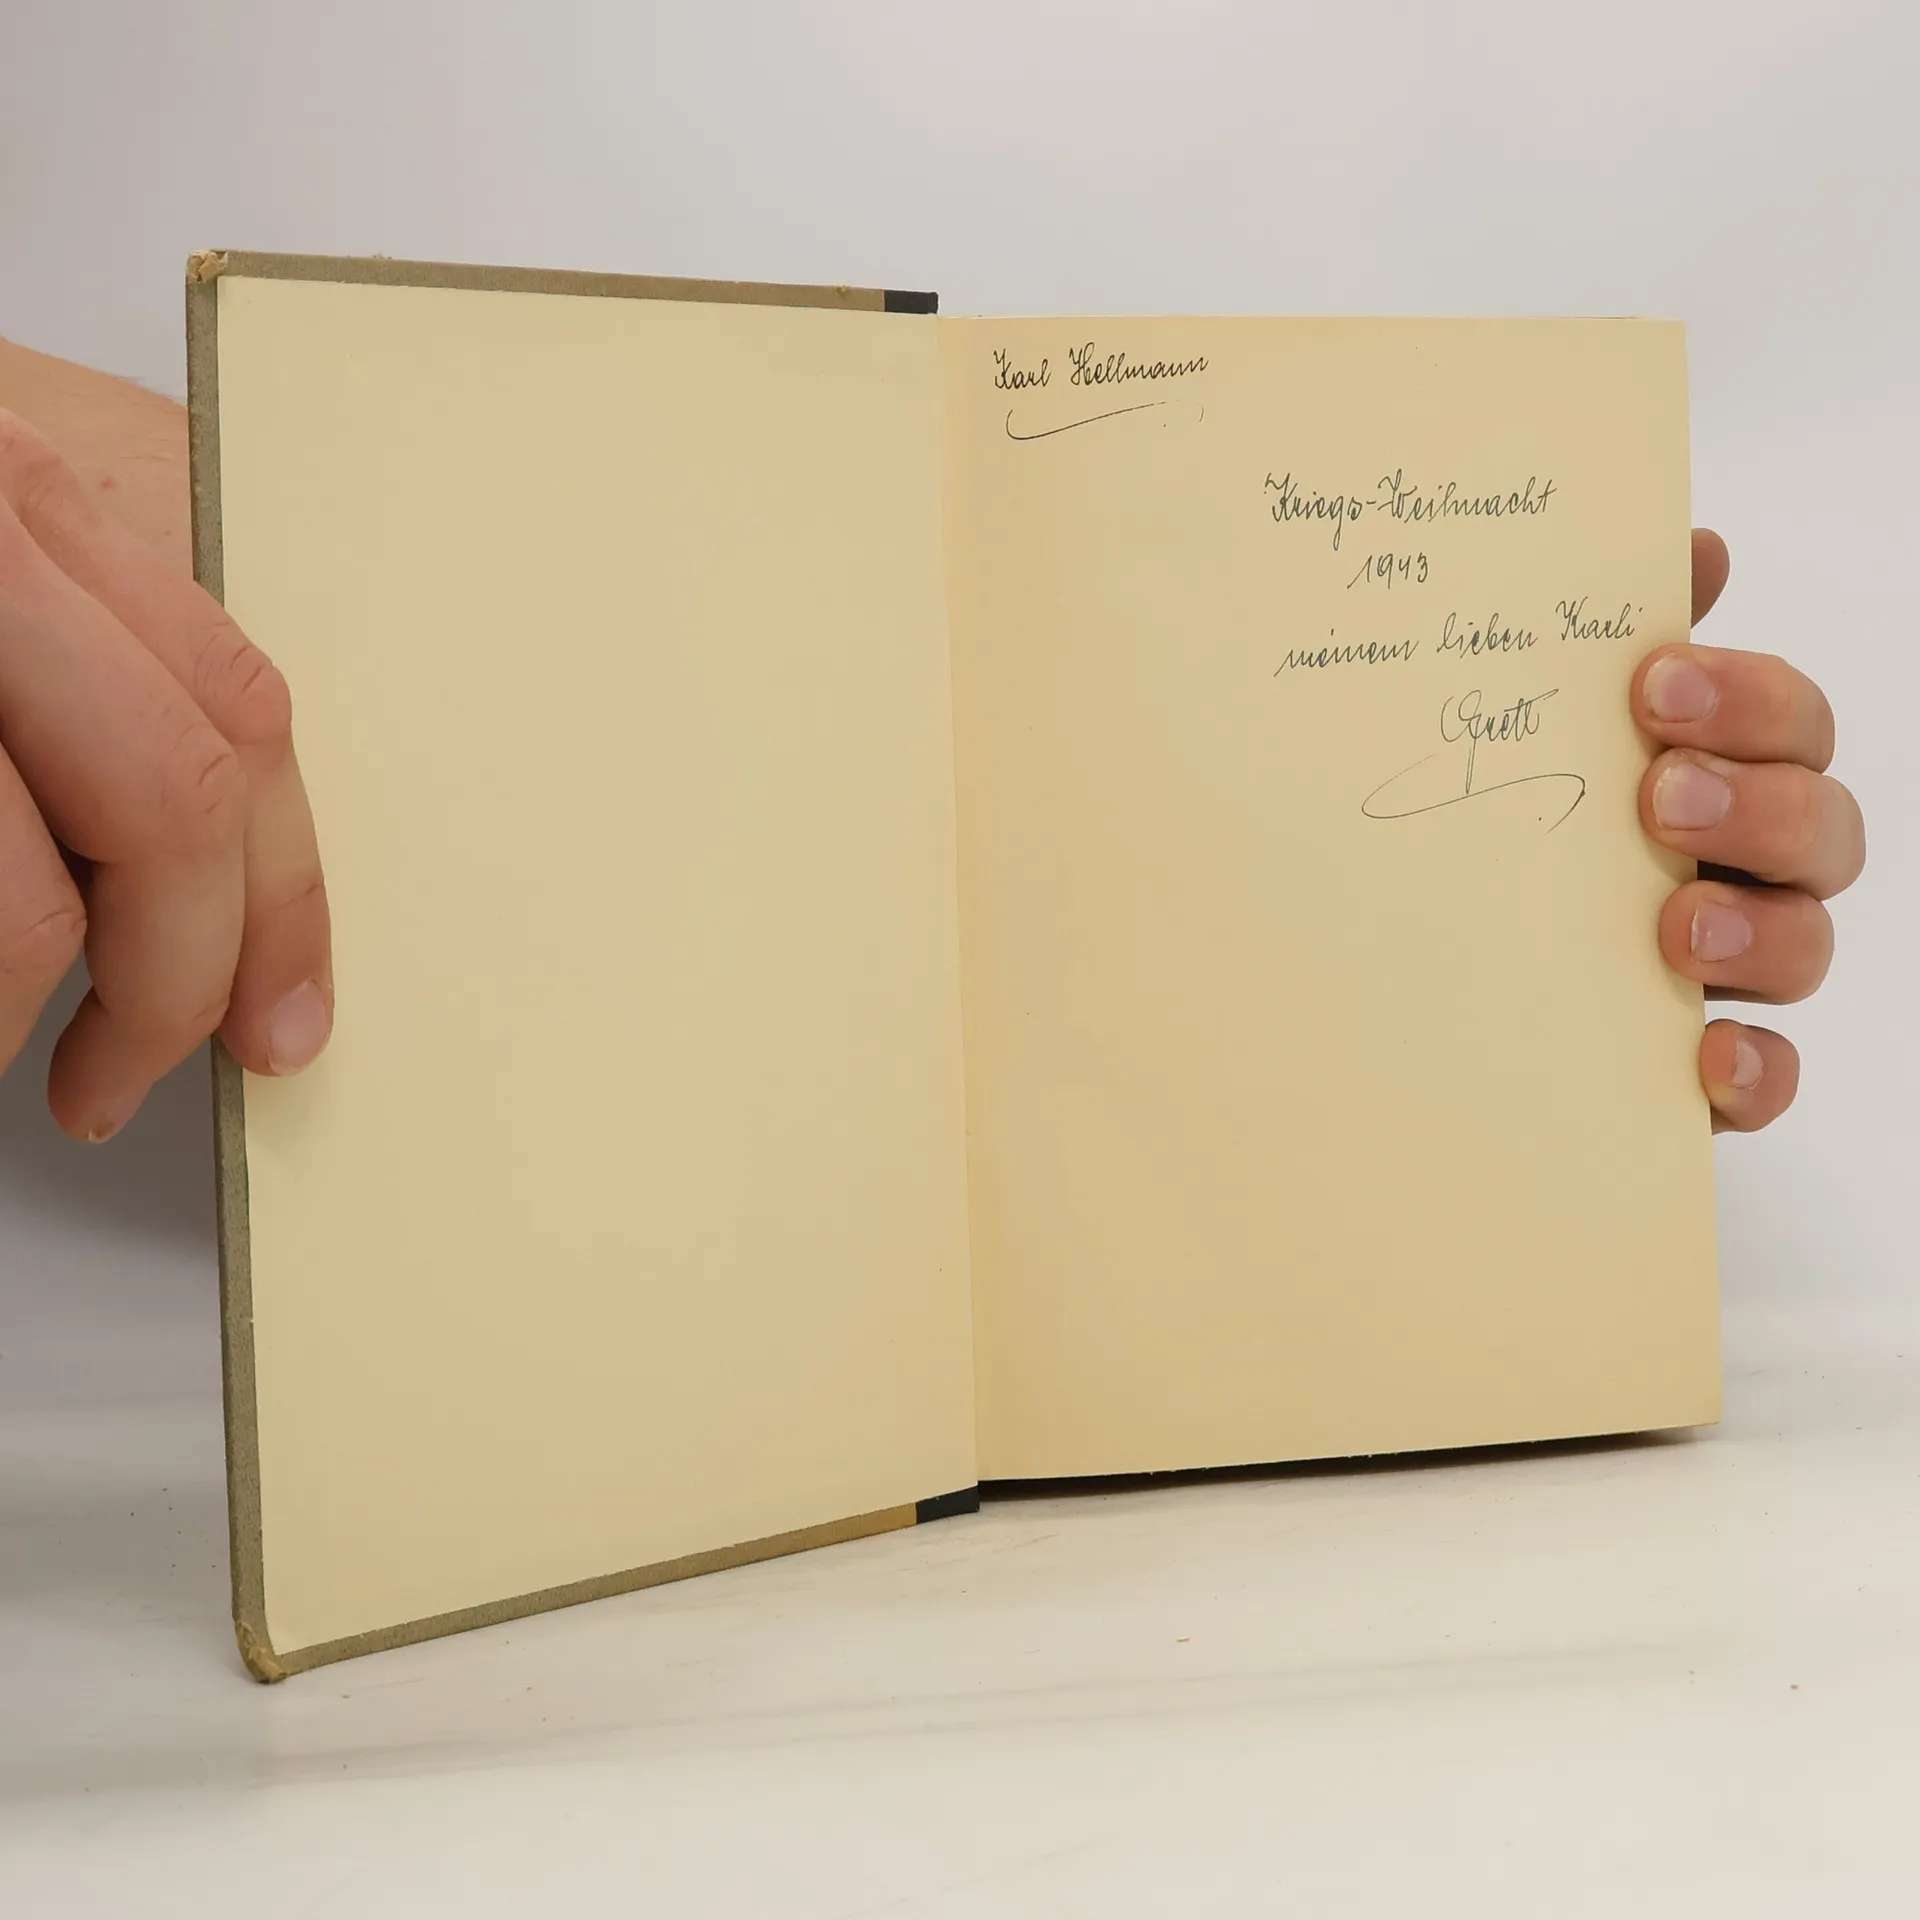 Karl Hellmann
Kriegs-Weihnacht
1943
meinem lieben Karli
Gretl